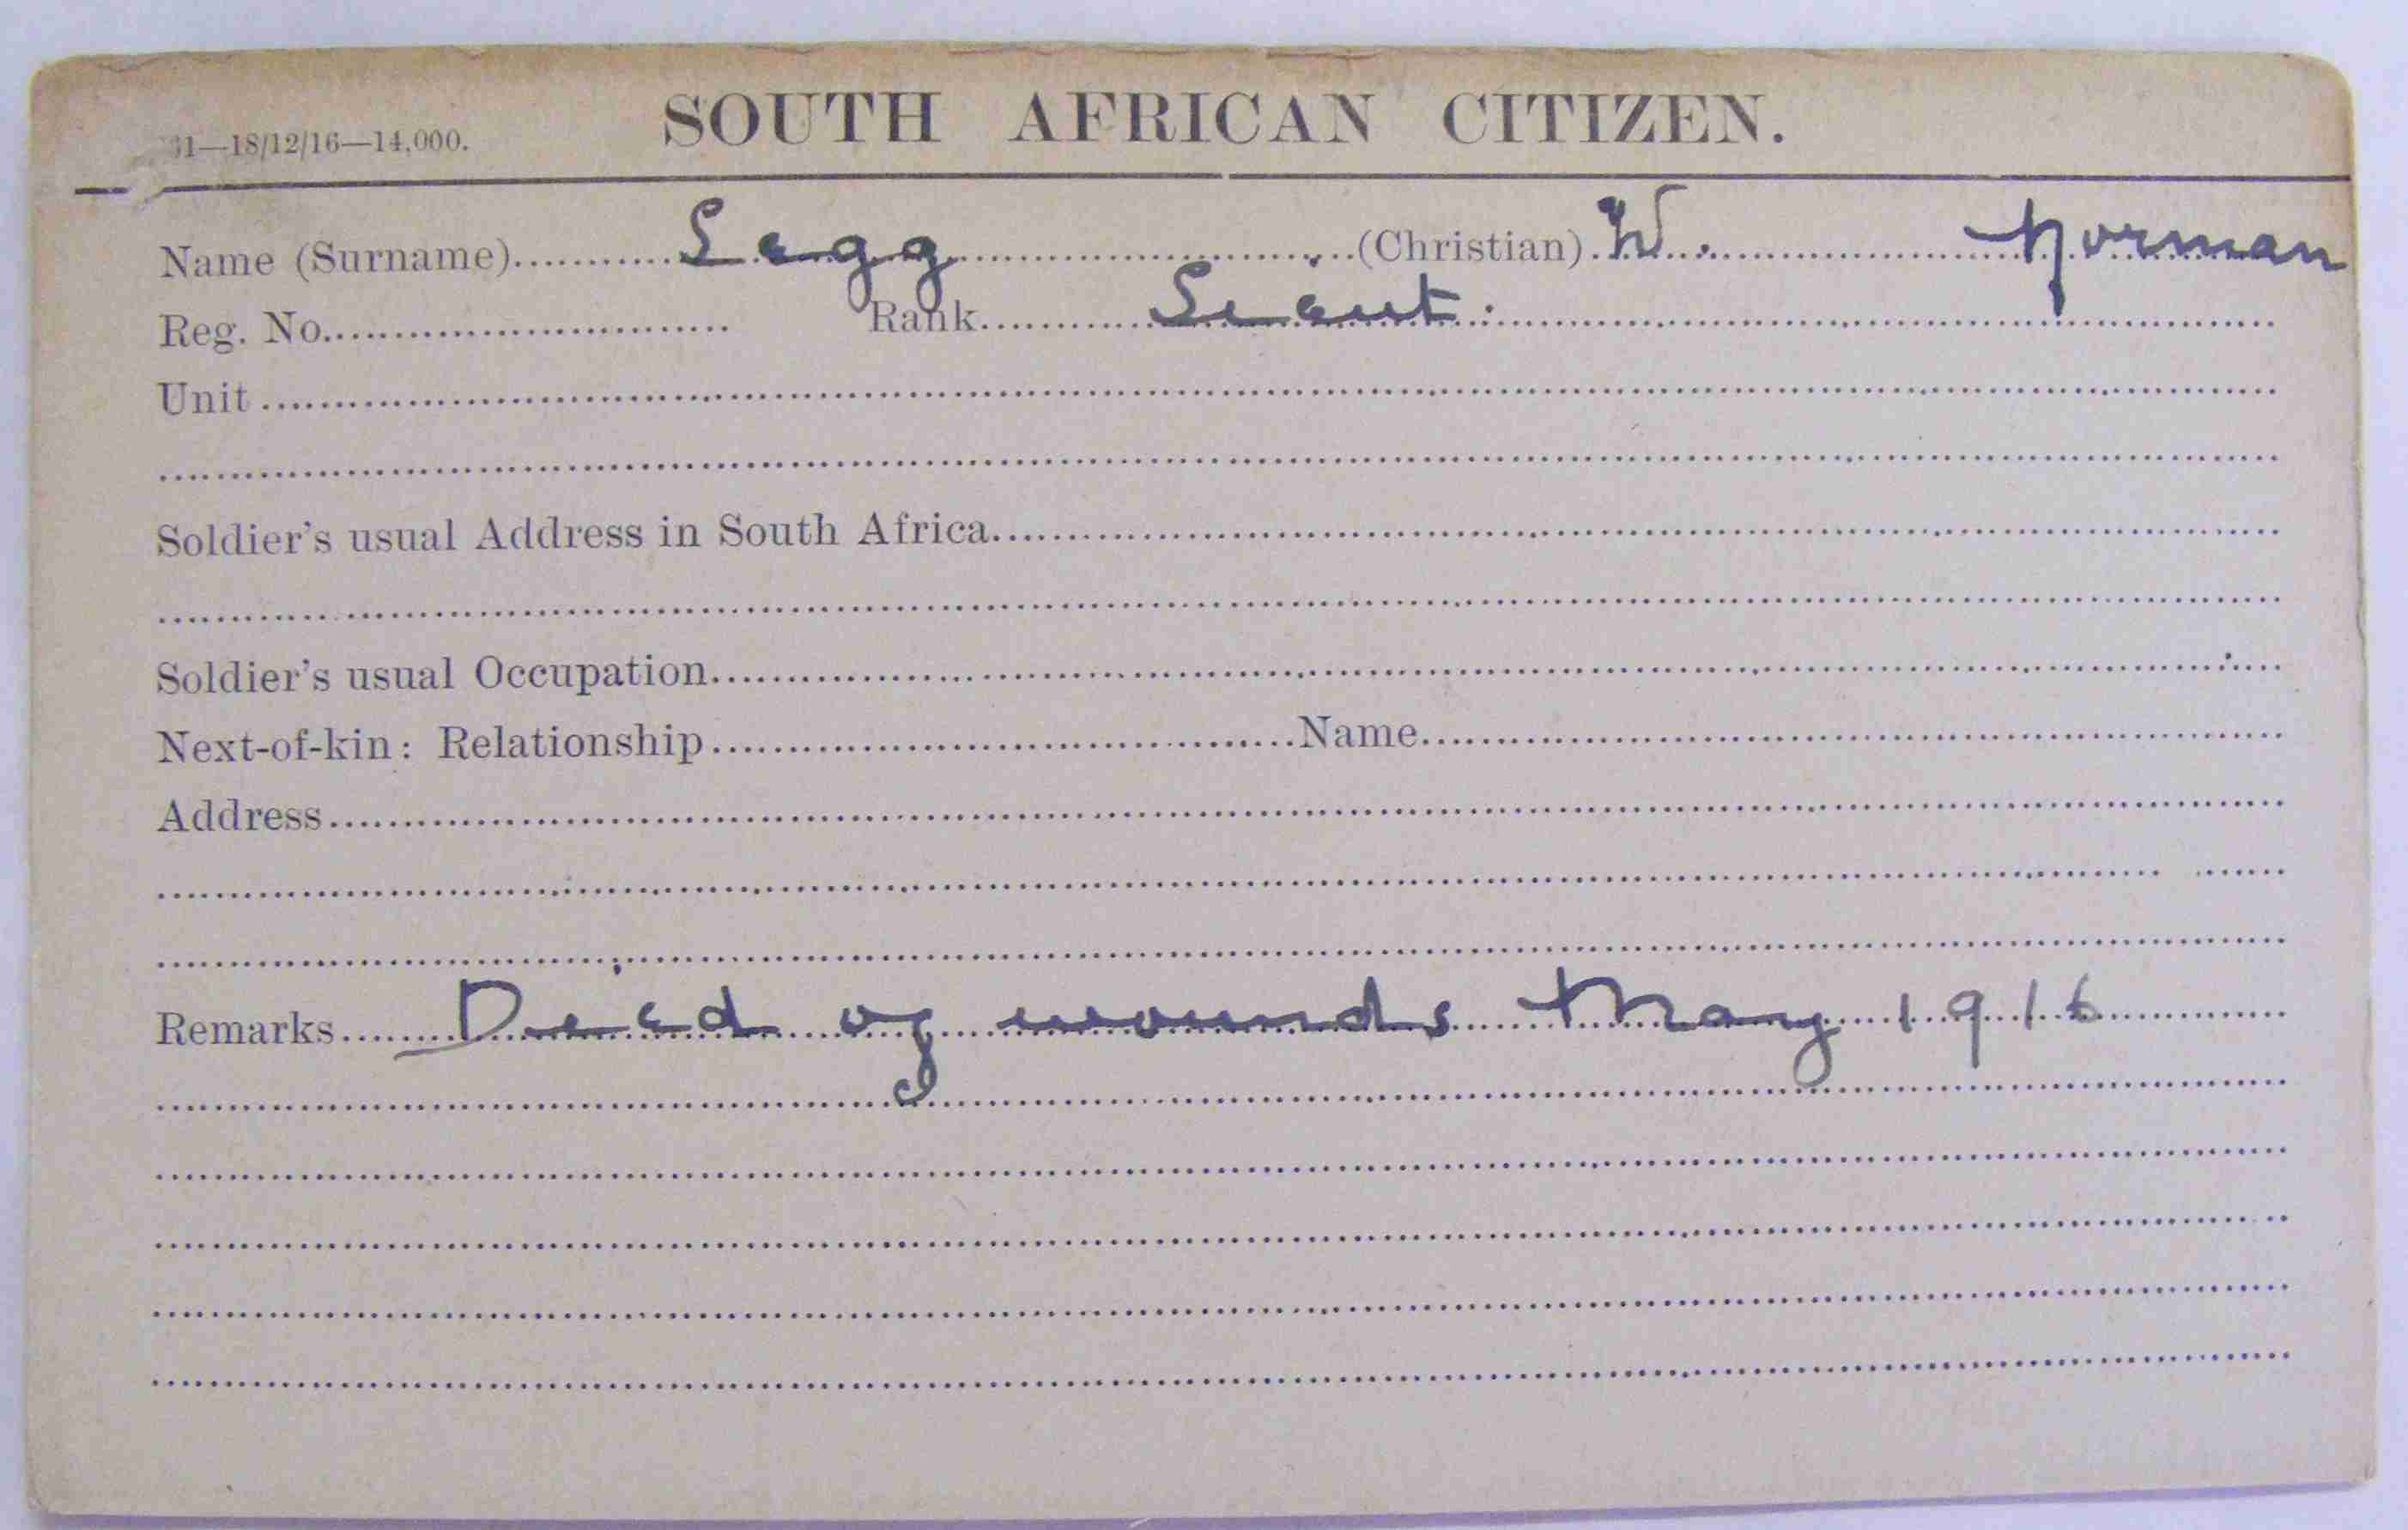 31—18/12/16—14,000.
SOUTH AFRICAN CITIZEN.
Name (Surname) Legg (Christian) W. Norman
Reg. No. Rank Lieut.
Unit
Soldier's usual Address in South Africa
Soldier's usual Occupation
Next-of-kin: Relationship Name
Address
Remarks Died of wounds May 1916